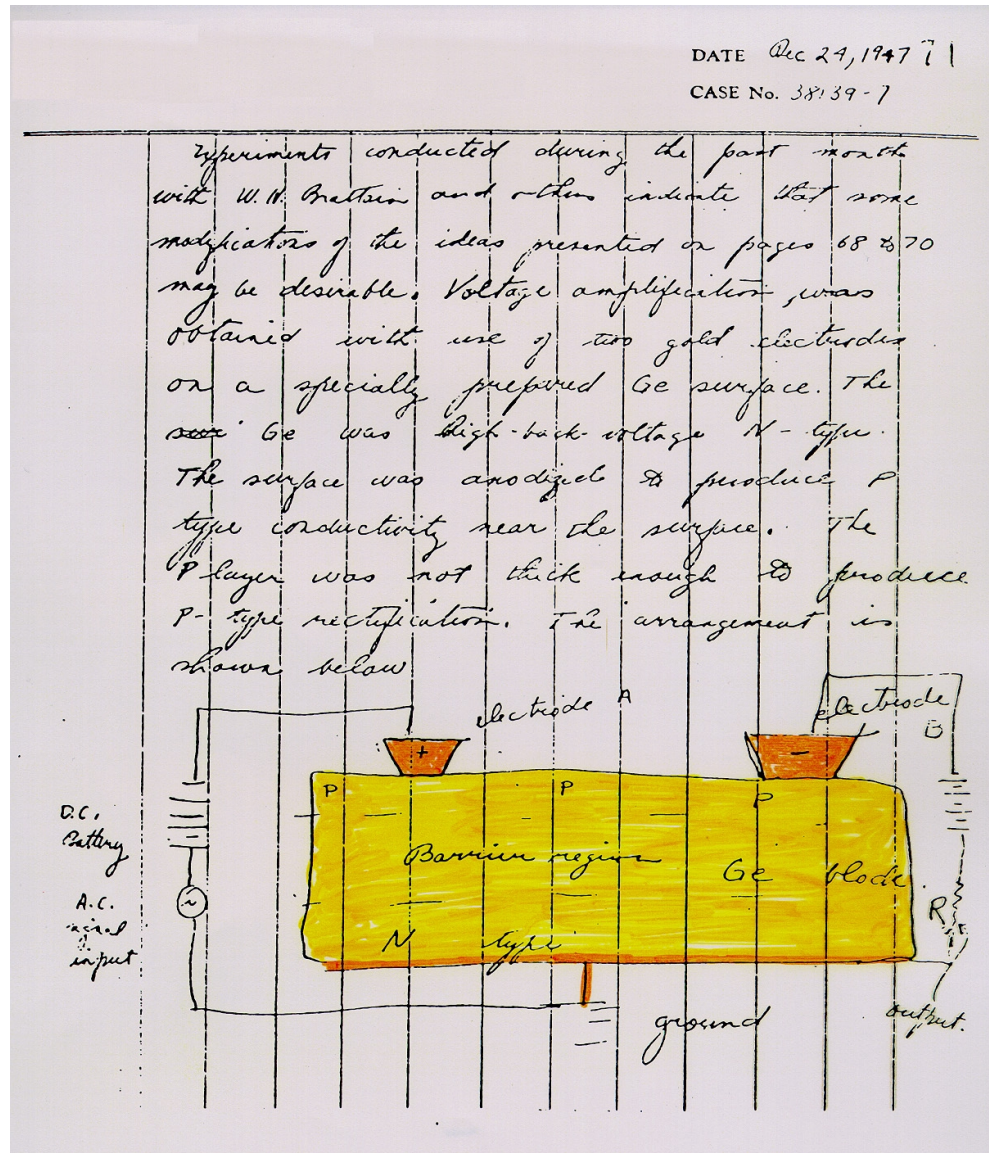 DATE Dec 24, 1947 71
CASE No. 38139-7
Experiments conducted during the past month
with W. H. Brattain and others indicate that some
modifications of the ideas presented on pages 68 to 70
may be desirable. Voltage amplification was
obtained with use of two gold electrodes
on a specially prepared Ge surface. The
Ge was high-back-voltage N-type.
The surface was anodized to produce P
type conductivity near the surface. The
P layer was not thick enough to produce
P-type rectification. The arrangement is
shown below
electrode A
electrode B
+
-
P P P
D.C. Battery
Barrier region
Ge block
A.C. signal input
R
N type
ground
output.